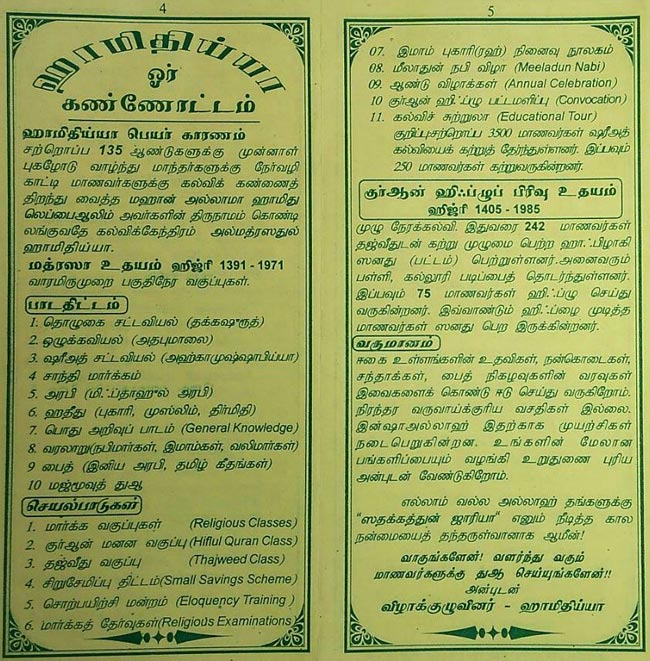 4
ஹாமிதிய்யா
ஓர்
கண்ணோட்டம்
ஹாமிதிய்யா பெயர் காரணம்
சற்றொப்ப 135 ஆண்டுகளுக்கு முன்னாள்
புகழோடு வாழ்ந்து மாந்தர்களுக்கு நேர்வழி
காட்டி மாணவர்களுக்கு கல்விக் கண்ணைத்
திறந்து வைத்த மஹான் அல்லாமா ஹாமிது
லெப்பைஆலிம் அவர்களின் திருநாமம் கொண்டி
லங்குவதே கல்விக்கேந்திரம் அல்மத்ரஸதுல்
ஹாமிதிய்யா.
மத்ரஸா உதயம் ஹிஜ்ரி 1391 - 1971
வாரமிருமுறை பகுதிநேர வகுப்புகள்.
பாடதிட்டம்
1. தொழுகை சட்டவியல் (தக்கஷரூத்)
2. ஒழுக்கவியல் (அதபுமாலை)
3. ஷரீஅத் சட்டவியல் (அஹ்காமுஷ்ஷாபிய்யா)
4 சாந்தி மார்க்கம்
5. அரபி (மிஃப்தாஹுல் அரபி)
6. ஹதீது (புகாரி, முஸ்லிம், திர்மிதி)
7. பொது அறிவுப் பாடம் (General Knowledge)
8. வரலாறு(நபிமார்கள், இமாம்கள், வலிமார்கள்)
9 பைத் (இனிய அரபி, தமிழ் கீதங்கள்)
10 மஜ்மூவுத் துஆ
செயல்பாடுகள்
1. மார்க்க வகுப்புகள் (Religious Classes)
2. குர்ஆன் மனன வகுப்பு (Hiflul Quran Class)
3. தஜ்வீது வகுப்பு (Thajweed Class)
4. சிறுசேமிப்பு திட்டம்(Small Savings Scheme)
5. சொற்பயிற்சி மன்றம் (Eloquency Training )
6. மார்க்கத் தேர்வுகள்(Religious Examinations)
5
07. இமாம் புகாரி(ரஹ்) நினைவு நூலகம்
08. மீலாதுன் நபி விழா (Meeladun Nabi)
09. ஆண்டு விழாக்கள் (Annual Celebration)
10 குர்ஆன் ஹிஃப்ழு பட்டமளிப்பு (Convocation)
11. கல்விச் சுற்றுலா (Educational Tour)
குறிப்பு:சற்றொப்ப 3500 மாணவர்கள் ஷரீஅத்
கல்வியைக் கற்றுத் தேர்ந்துள்ளனர். இப்பவும்
250 மாணவர்கள் கற்றுவருகின்றனர்.
குர்ஆன் ஹிஃப்ழுப் பிரிவு உதயம்
ஹிஜ்ரி 1405 - 1985
முழு நேரக்கல்வி. இதுவரை 242 மாணவர்கள்
தஜ்வீதுடன் கற்று முழுமை பெற்ற ஹாஃபிழாகி
ஸனது (பட்டம்) பெற்றுள்ளனர்.அனைவரும்
பள்ளி, கல்லூரி படிப்பைத் தொடர்ந்துள்ளனர்.
இப்பவும் 75 மாணவர்கள் ஹிஃப்ழு செய்து
வருகின்றனர். இவ்வாண்டும் ஹிஃப்ழை முடித்த
மாணவர்கள் ஸனது பெற இருக்கின்றனர்.
வருமானம்
ஈகை உள்ளங்களின் உதவிகள், நன்கொடைகள்,
சந்தாக்கள், பைத் நிகழ்வுகளின் வரவுகள்
இவைகளைக் கொண்டு ஈடு செய்து வருகிறோம்.
நிரந்தர வருவாய்க்குரிய வசதிகள் இல்லை.
இன்ஷாஅல்லாஹ் இதற்காக முயற்சிகள்
நடைபெறுகின்றன. உங்களின் மேலான
பங்களிப்பையும் வழங்கி உறுதுணை புரிய
அன்புடன் வேண்டுகிறோம்.
எல்லாம் வல்ல அல்லாஹ் தங்களுக்கு
"ஸதக்கத்துன் ஜாரியா" எனும் நீடித்த கால
நன்மையைத் தந்தருள்வானாக ஆமீன்!
வாருங்களேன்! வளர்ந்து வரும்
மாணவர்களுக்கு துஆ செய்யுங்களேன்!!
அன்புடன்
விழாக்குழுவினர் - ஹாமிதிய்யா